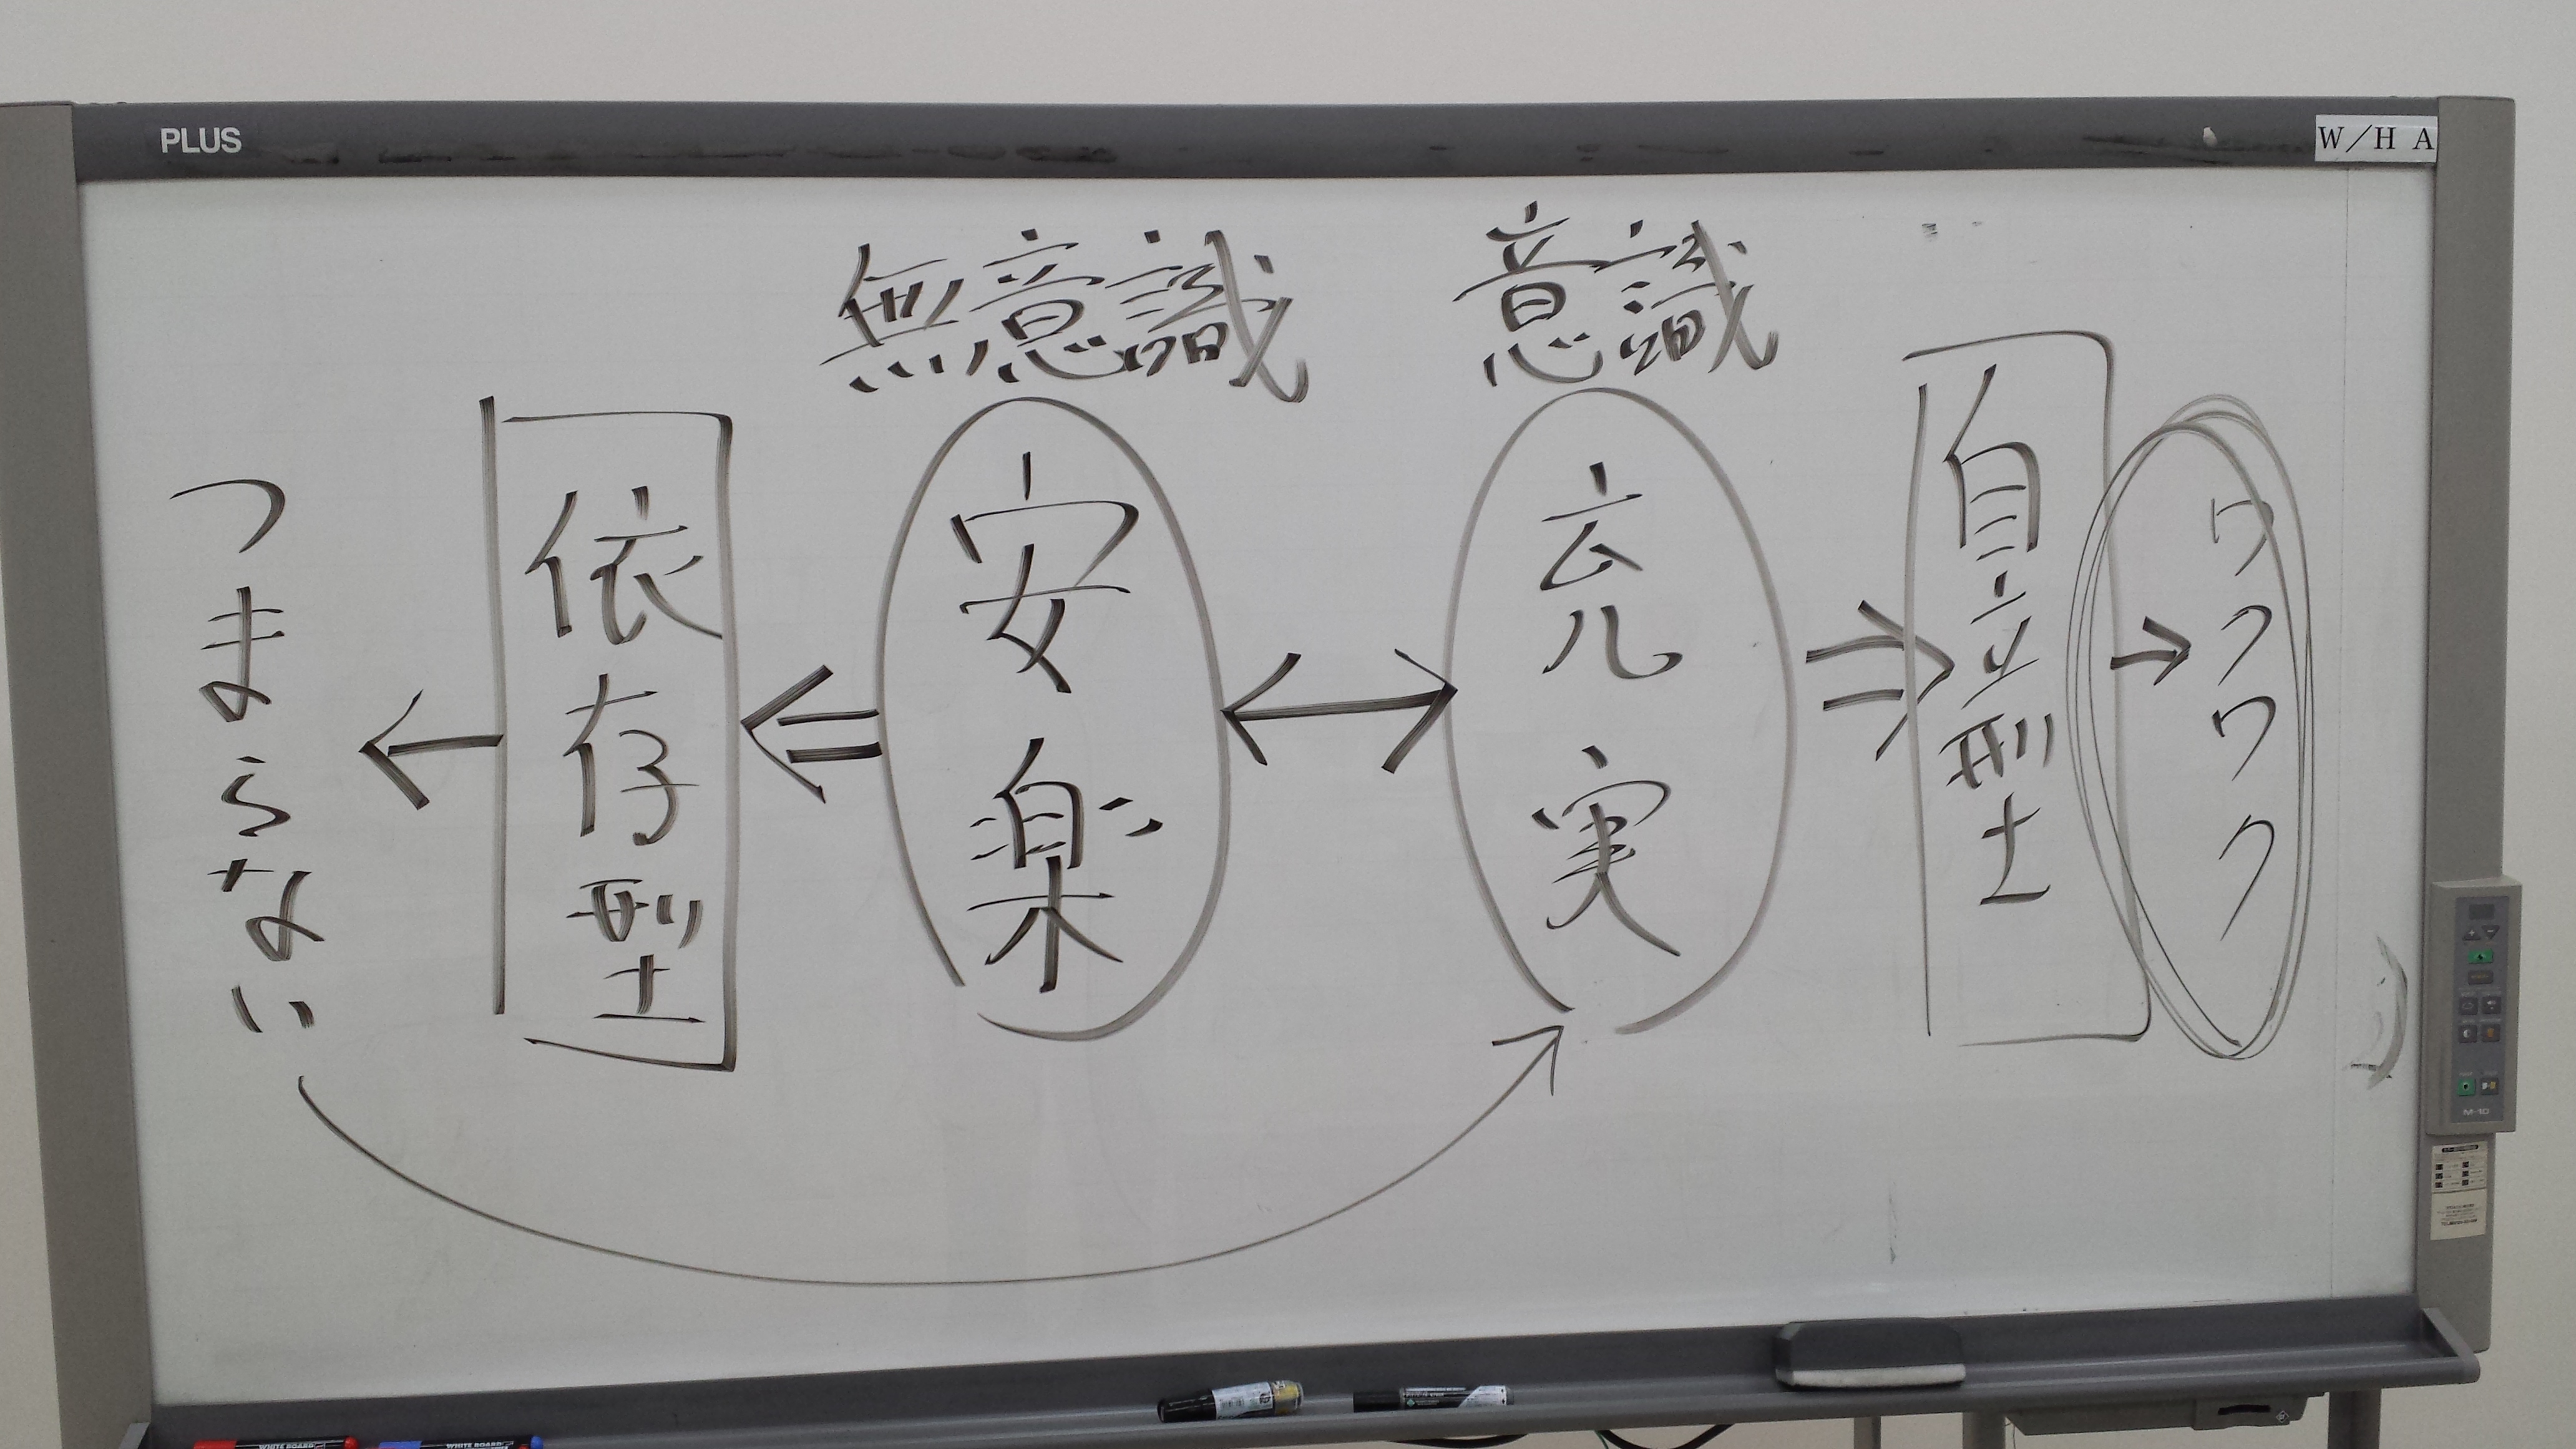 PLUS
W/H A
無意識
意識
つまらない
依存型
安楽
充実
自立型
ワクワク
M-10
WHITE BOARD
WHITE BOARD